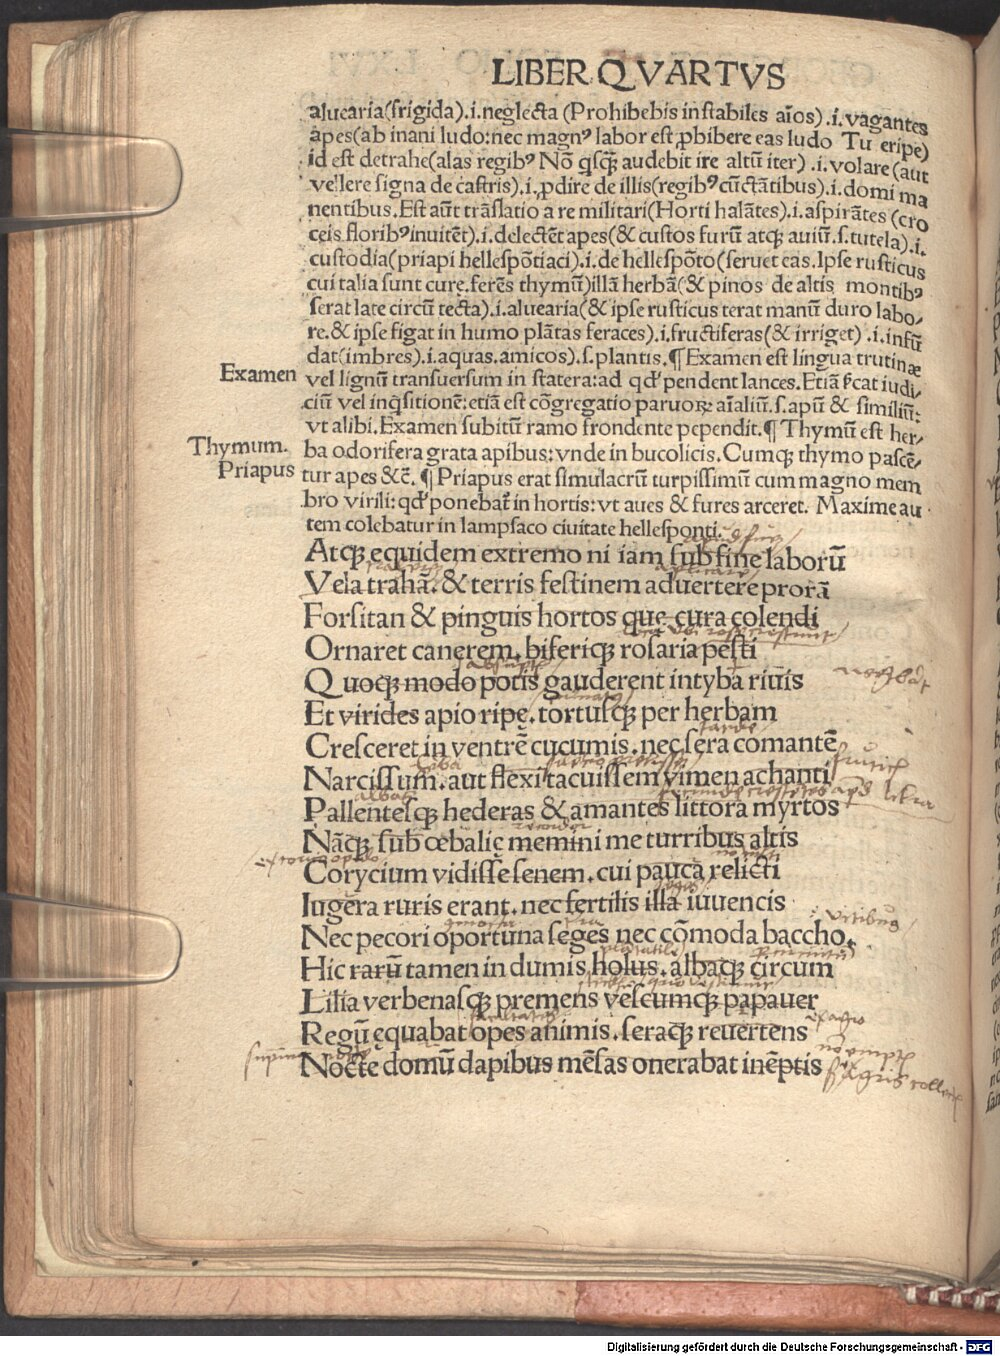 LIBER QVARTVS
aluearia(frigida).i.neglecta (Prohibebis instabiles aīos) .i.vagantes
apes(ab inani ludo:nec magnꝰ labor est ꝓhibere eas ludo Tu eripe)
id est detrahe(alas regibꝰ Nō qsq̃ audebit ire altū iter) .i.volare(aut
vellere signa de castris).i.ꝓdire de illis(regibꝰ cūctātibus).i.domi ma
nentibus.Est aūt trāslatio a re militari(Horti halātes).i.aspirātes (cro
ceis floribꝰ inuitēt).i.delectēt apes(& custos furū atqꝫ auiū.s.tutela).i.
custodia(priapi hellespōtiaci).i.de hellespōto(seruet eas.Ipse rusticus
cui talia sunt curę.ferēs thymū)illā herbā(& pinos de altis montibꝰ
serat late circū tecta).i.aluearia(& ipse rusticus terat manū duro labo,
re.& ipse figat in humo plātas feraces).i.fructiferas(& irriget) .i.infū
dat(imbres).i.aquas.amicos).s.plantis.¶ Examen est lingua trutinæ
Examen
vel lignū transuersum in statera:ad qď pendent lances.Etiā ſ̄cat iudi,
ciū vel inq̄sitionē:etiā est cōgregatio paruoꝝ aīaliū.s.apū & similiū:
vt alibi.Examen subitū ramo frondente pependit.¶ Thymū est her,
Thymum.
ba odorifera grata apibus:vnde in bucolicis.Cumqꝫ thymo pascē,
Priapus
tur apes &c̄. ¶ Priapus erat simulacrū turpissimū cum magno mem
bro virili:qď ponebat̄ in hortis:vt aues & fures arceret. Maxime au
tem colebatur in lampsaco ciuitate hellesponti.
Atqꝫ equidem extremo ni iam sub fine laborū
Vela trahā. & terris festinem aduertere prorā
Forsitan & pinguis hortos quę cura colendi
Ornaret canerem. biferiqꝫ rosaria pesti
Quoqꝫ modo potis gauderent intyba riuis
Et virides apio ripę. tortusqꝫ per herbam
Cresceret in ventrē cucumis. nec sera comantē
Narcissum. aut flexi tacuissem vimen achanti
Pallentesqꝫ hederas & amantes littora myrtos
Nāqꝫ sub œbalię memini me turribus altis
Corycium vidisse senem. cui pauca relicti
Iugera ruris erant. nec fertilis illa iuuencis
Nec pecori oportuna seges nec cōmoda baccho.
Hic rarū tamen in dumis holus. albaqꝫ circum
Lilia verbenasqꝫ premens vescumqꝫ papauer
Regū ęquabat opes animis. seraqꝫ reuertens
Nocte domū dapibus mēsas onerabat inēptis
Digitalisierung gefördert durch die Deutsche Forschungsgemeinschaft - DFG